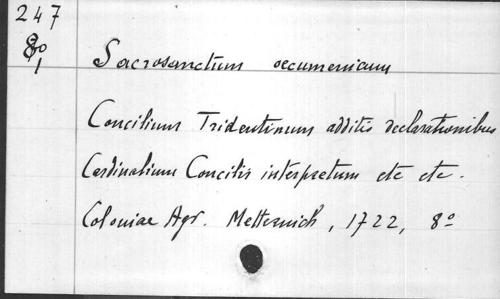 247
8º
1
Sacrosanctum oecumenicum
Concilium Tridentinum additis declarationibus
Cardinalium Concilii interpretum etc etc.
Coloniae Agr. Metternich, 1722, 8º